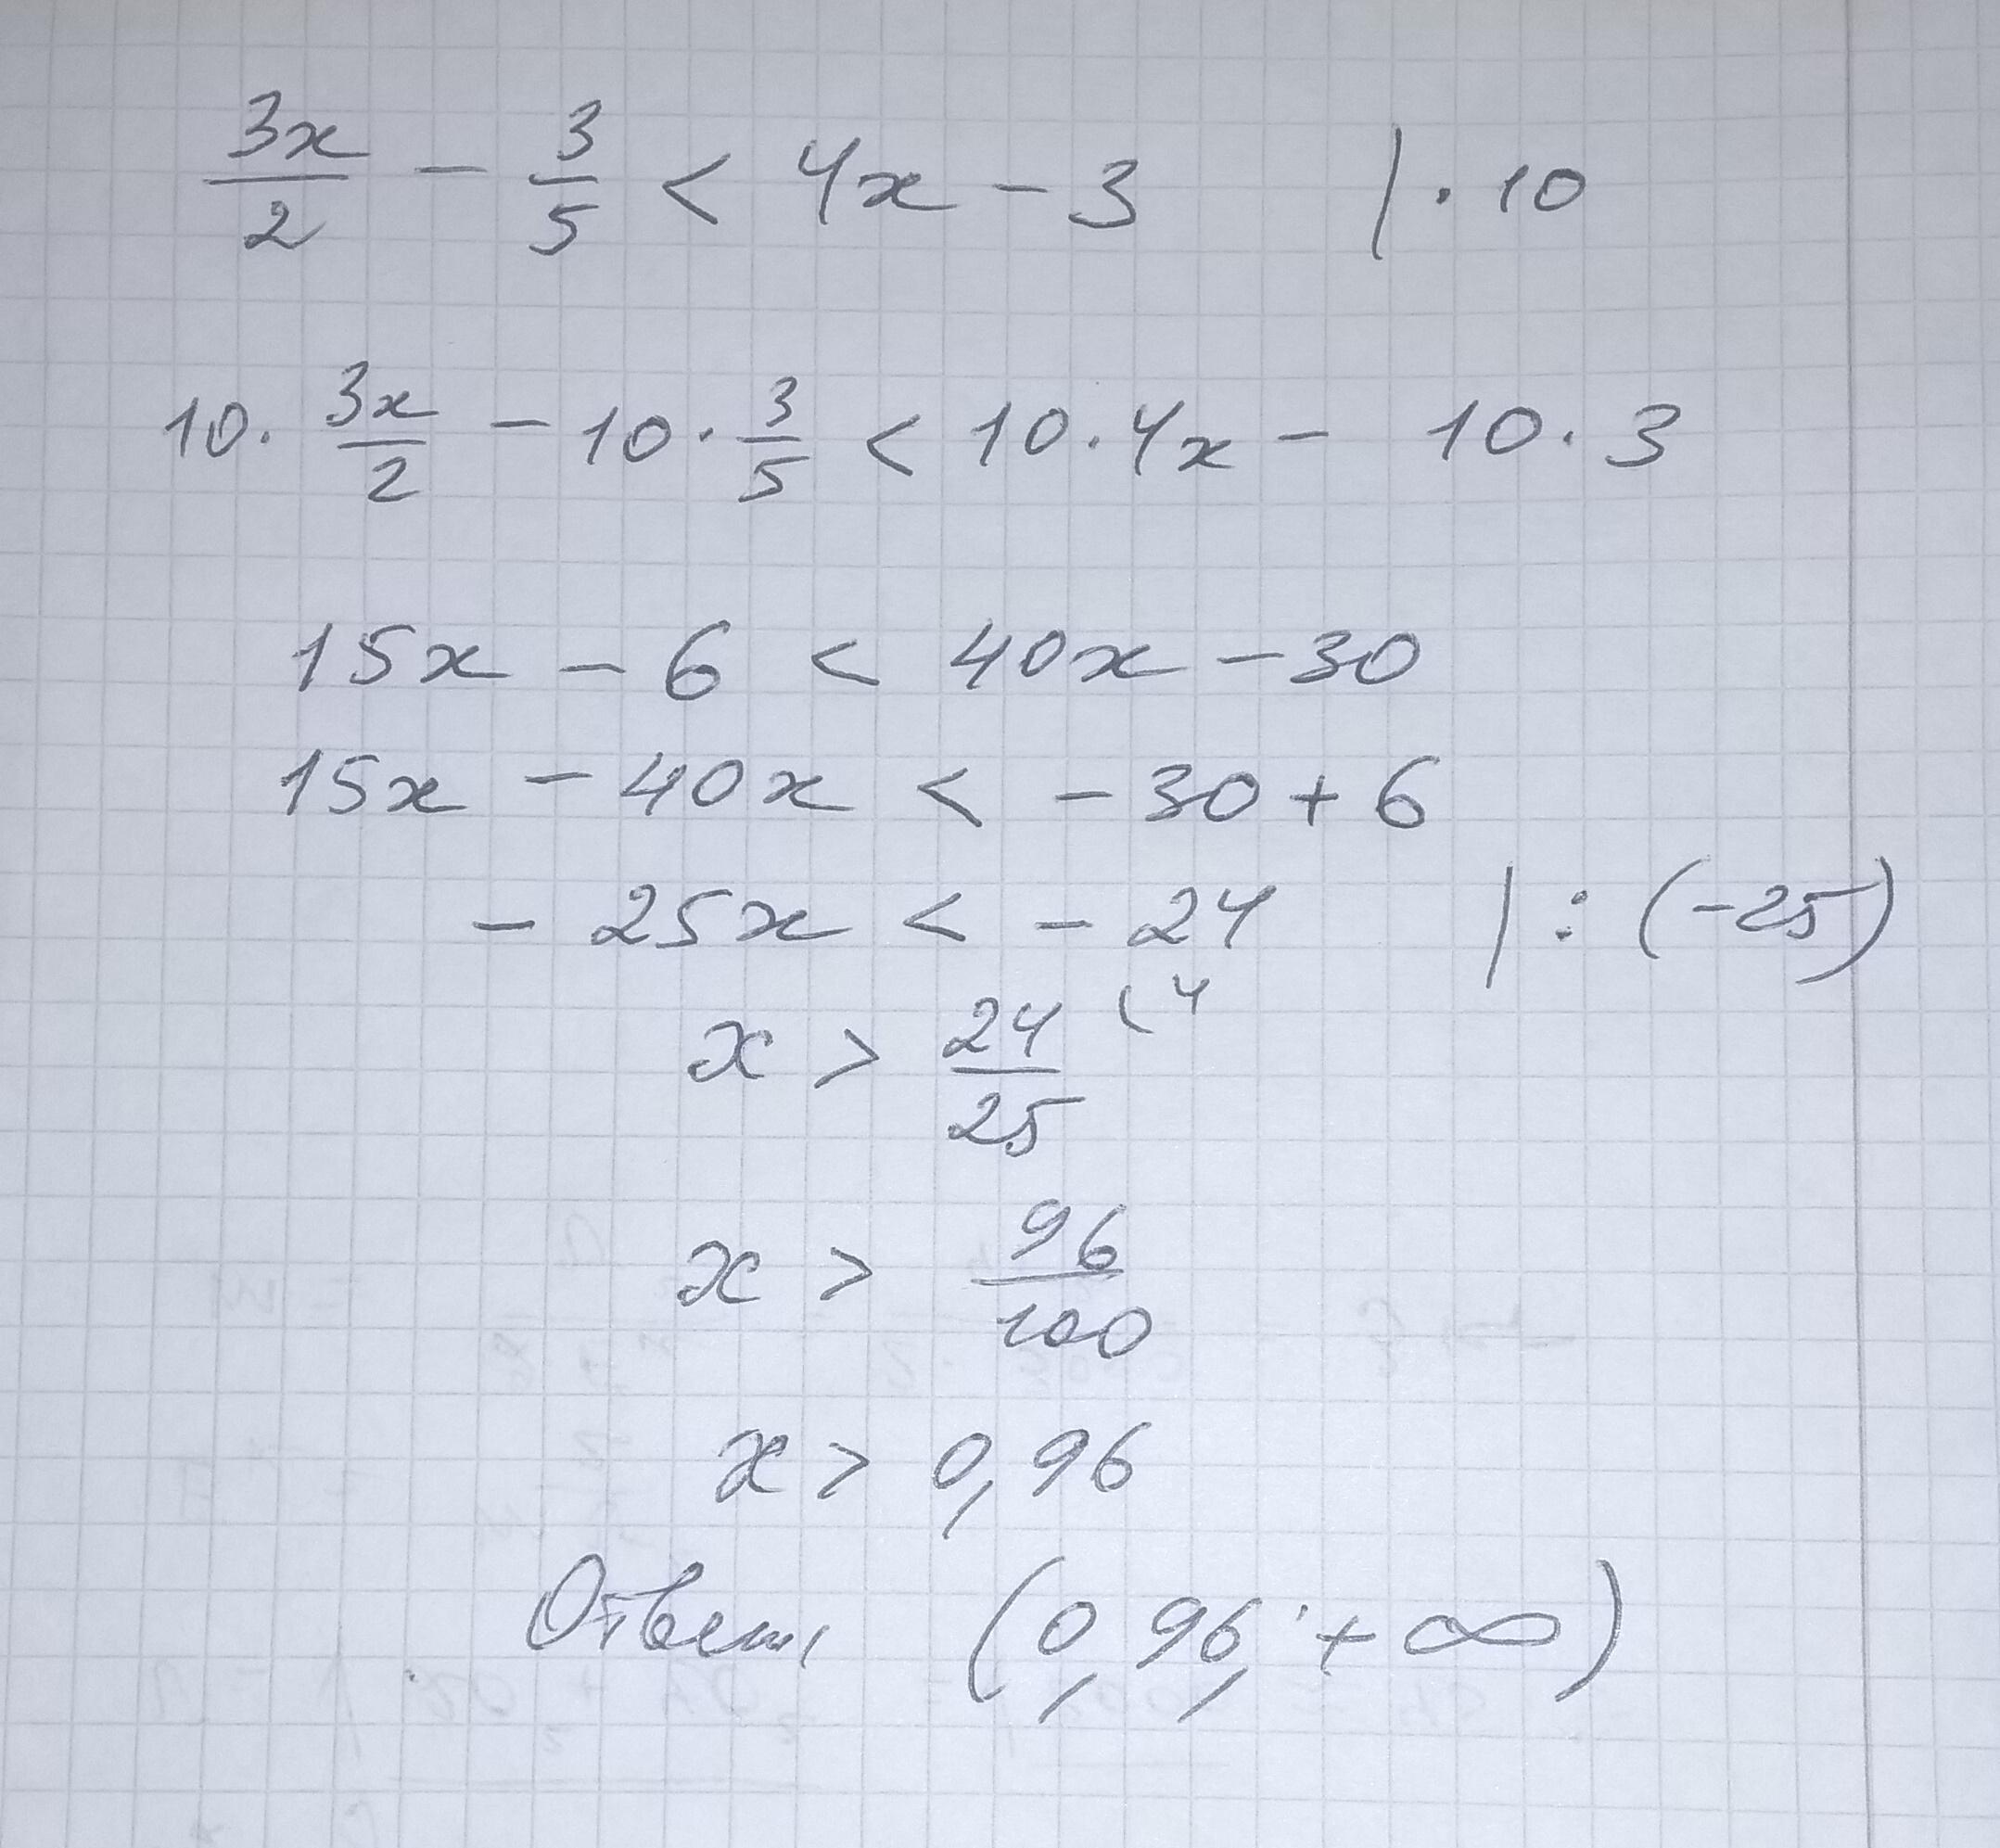 3x/2 - 3/5 < 4x - 3 | · 10
10 · 3x/2 - 10 · 3/5 < 10 · 4x - 10 · 3
15x - 6 < 40x - 30
15x - 40x < - 30 + 6
- 25x < - 24 | : (-25)
x > 24/25 (4
x > 96/100
x > 0,96
Ответ (0,96; + ∞)